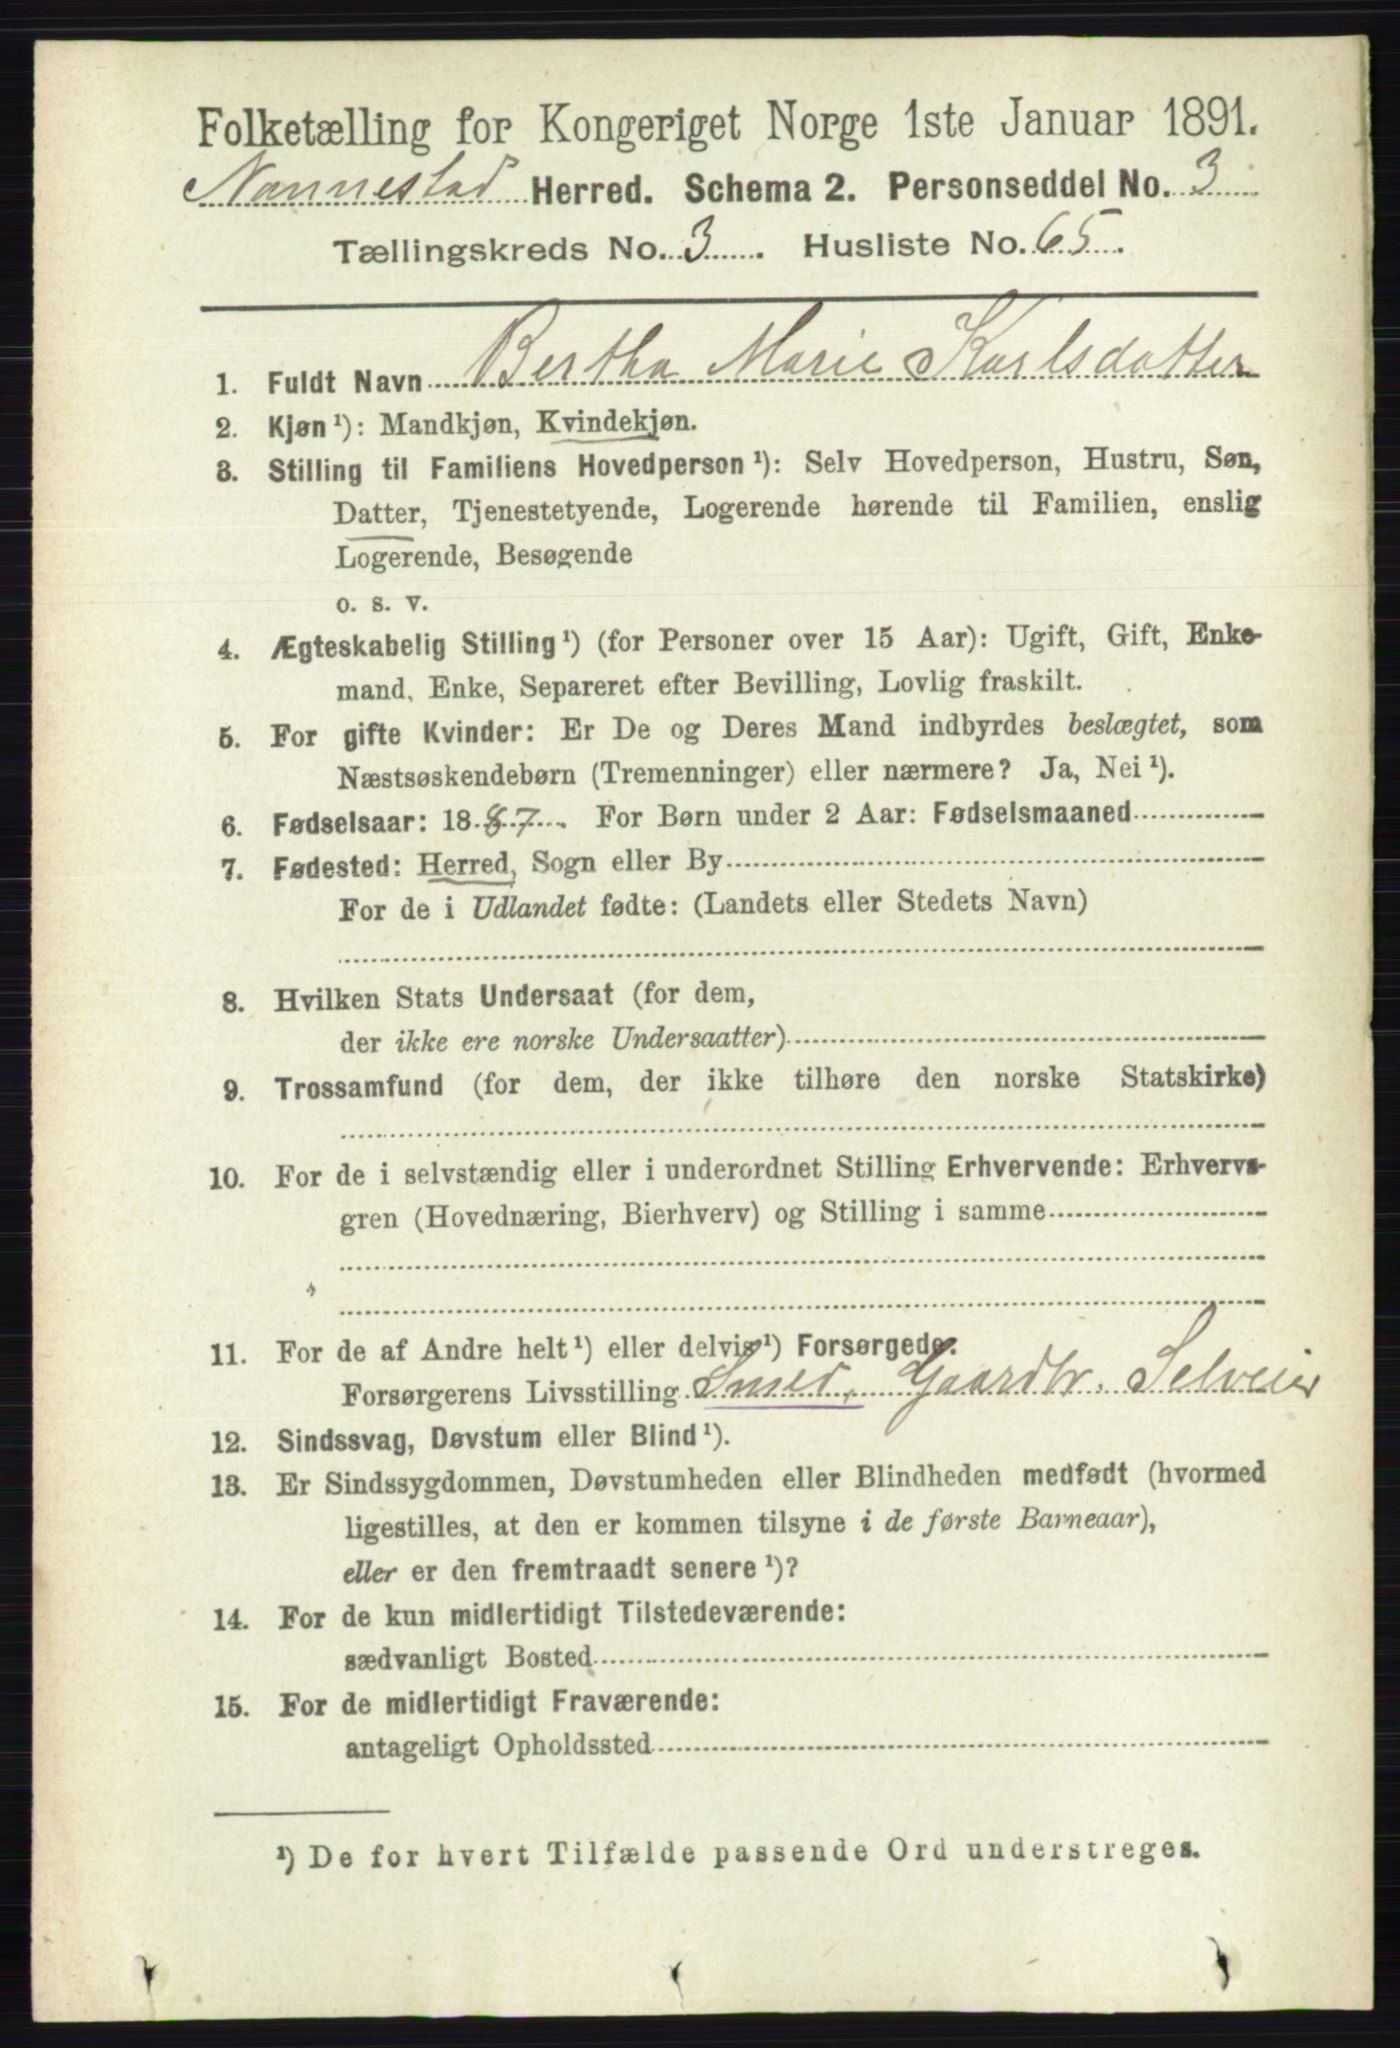 Folketælling for Kongeriget Norge 1ste Januar 1891.
Nannestad Herred. Schema 2. Personseddel No. 3
Tællingskreds No. 3. Husliste No. 65.
1. Fuldt Navn Bertha Marie Karlsdatter
2. Kjøn ¹): Mandkjøn, Kvindekjøn.
3. Stilling til Familiens Hovedperson ¹): Selv Hovedperson, Hustru, Søn,
Datter, Tjenestetyende, Logerende hørende til Familien, enslig
Logerende, Besøgende
o. s. v.
4. Ægteskabelig Stilling ¹) (for Personer over 15 Aar): Ugift, Gift, Enke-
mand, Enke, Separeret efter Bevilling, Lovlig fraskilt.
5. For gifte Kvinder: Er De og Deres Mand indbyrdes beslægtet, som
Næstsøskendebørn (Tremenninger) eller nærmere? Ja, Nei ¹).
6. Fødselsaar: 1887. For Børn under 2 Aar: Fødselsmaaned
7. Fødested: Herred, Sogn eller By
For de i Udlandet fødte: (Landets eller Stedets Navn)
8. Hvilken Stats Undersaat (for dem,
der ikke ere norske Undersaatter)
9. Trossamfund (for dem, der ikke tilhøre den norske Statskirke)
10. For de i selvstændig eller i underordnet Stilling Erhvervende: Erhvervs-
gren (Hovednæring, Bierhverv) og Stilling i samme
11. For de af Andre helt ¹) eller delvis ¹) Forsørgede:
Forsørgerens Livsstilling Smed, Gaardbr. Selveier
12. Sindssvag, Døvstum eller Blind ¹).
13. Er Sindssygdommen, Døvstumheden eller Blindheden medfødt (hvormed
ligestilles, at den er kommen tilsyne i de første Barneaar),
eller er den fremtraadt senere ¹)?
14. For de kun midlertidigt Tilstedeværende:
sædvanligt Bosted
15. For de midlertidigt Fraværende:
antageligt Opholdssted
¹) De for hvert Tilfælde passende Ord understreges.